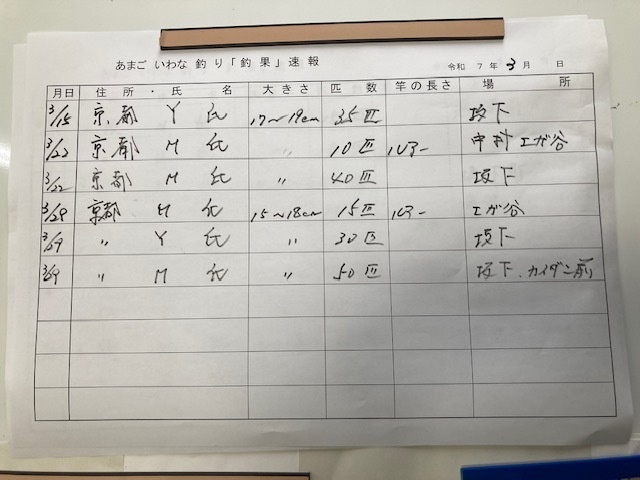 あまご いわな 釣り「釣果」速報
令和 7年 3月 日
月日 住所・氏名 大きさ 匹数 竿の長さ 場所
3/15 京都 Y 氏 17〜19cm 35匹 坂下
3/22 京都 M 氏 〃 10匹 中村 エガ谷
3/22 京都 M 氏 〃 40匹 坂下
京都 M 氏 15〜18cm 15匹 エガ谷
3/29 〃 Y 氏 〃 30匹 坂下
3/29 〃 M 氏 〃 50匹 坂下、カイダン前